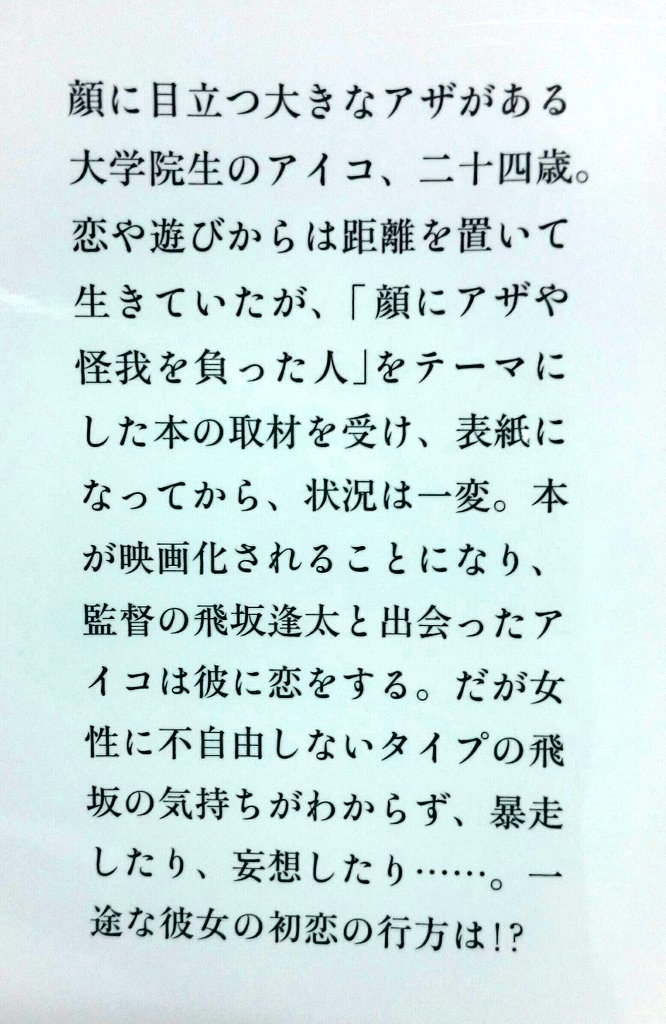 顔に目立つ大きなアザがある
大学院生のアイコ、二十四歳。
恋や遊びからは距離を置いて
生きていたが、「顔にアザや
怪我を負った人」をテーマに
した本の取材を受け、表紙に
なってから、状況は一変。本
が映画化されることになり、
監督の飛坂逢太と出会ったア
イコは彼に恋をする。だが女
性に不自由しないタイプの飛
坂の気持ちがわからず、暴走
したり、妄想したり……。一
途な彼女の初恋の行方は!?